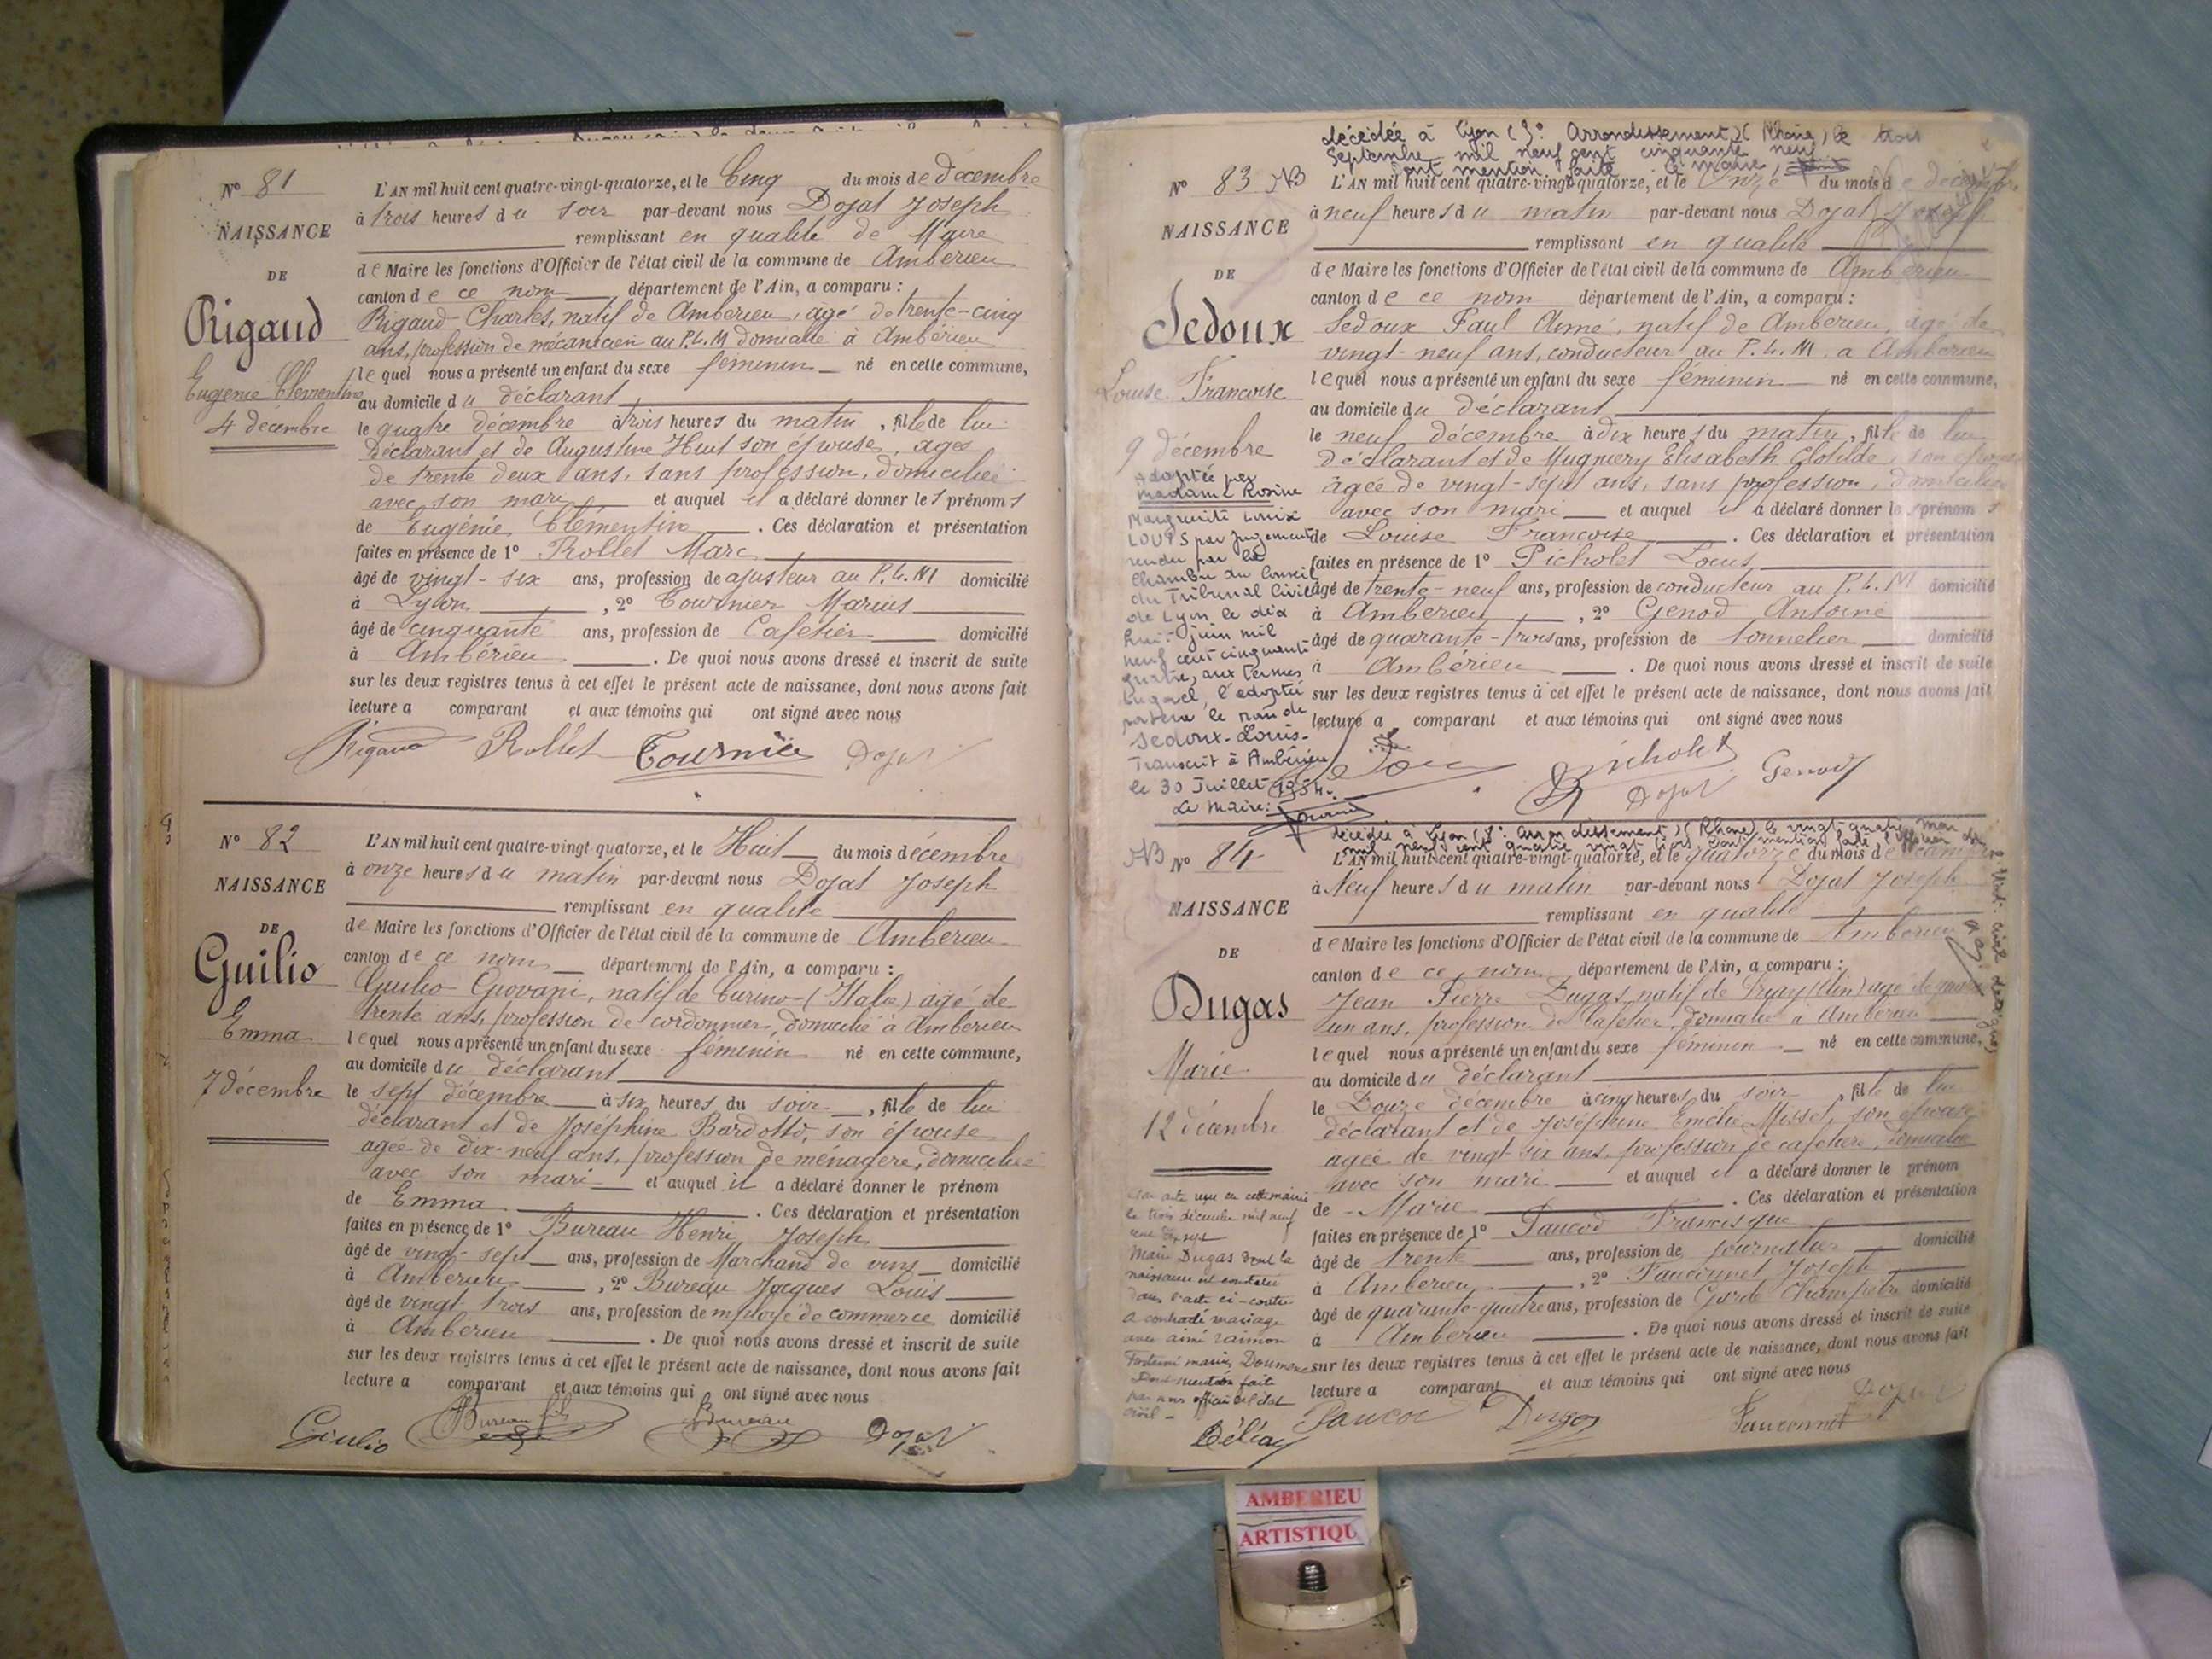 N° 81
NAISSANCE
DE
Rigaud
Eugénie Clémentine
4 décembre
L'AN mil huit cent quatre-vingt-quatorze, et le Cinq du mois de décembre
à trois heures du soir par-devant nous Dojat Joseph
remplissant en qualité de Maire
de Maire les fonctions d'Officier de l'état civil de la commune de Ambérieu
canton de ce nom département de l'Ain, a comparu :
Rigaud Charles, natif de Ambérieu, âgé de trente-cinq
ans, profession de mécanicien au P.L.M domicilié à Ambérieu
lequel nous a présenté un enfant du sexe féminin né en cette commune,
au domicile du déclarant
le quatre décembre à trois heures du matin, fille de lui
déclarant et de Augustine Huit son épouse, agée
de trente deux ans, sans profession, domiciliée
avec son mari et auquel il a déclaré donner les prénoms
de Eugénie Clémentine . Ces déclaration et présentation
faites en présence de 1° Rollet Marc
âgé de vingt-six ans, profession de ajusteur au P.L.M domicilié
à Lyon , 2° Tournier Marius
âgé de cinquante ans, profession de Cafetier domicilié
à Ambérieu . De quoi nous avons dressé et inscrit de suite
sur les deux registres tenus à cet effet le présent acte de naissance, dont nous avons fait
lecture a comparant et aux témoins qui ont signé avec nous
Rigaud Rollet Tournier Dojat
N° 82
NAISSANCE
DE
Guilio
Emma
7 décembre
L'AN mil huit cent quatre-vingt-quatorze, et le Huit du mois décembre
à onze heures du matin par-devant nous Dojat Joseph
remplissant en qualité
de Maire les fonctions d'Officier de l'état civil de la commune de Ambérieu
canton de ce nom département de l'Ain, a comparu :
Guilio Giovani, natif de Turino (Italie) âgé de
trente ans, profession de cordonnier, domicilié à Ambérieu
lequel nous a présenté un enfant du sexe féminin né en cette commune,
au domicile du déclarant
le sept décembre à six heures du soir, fille de lui
déclarant et de Joséphine Bardotto, son épouse
agée de dix-neuf ans, profession de ménagère, domiciliée
avec son mari et auquel il a déclaré donner le prénom
de Emma . Ces déclaration et présentation
faites en présence de 1° Bureau Henri Joseph
âgé de vingt-sept ans, profession de Marchand de vins domicilié
à Ambérieu , 2° Bureau Jacques Louis
âgé de vingt trois ans, profession de employé de commerce domicilié
à Ambérieu . De quoi nous avons dressé et inscrit de suite
sur les deux registres tenus à cet effet le présent acte de naissance, dont nous avons fait
lecture a comparant et aux témoins qui ont signé avec nous
Giulio Bureau fils Bureau Dojat
décédée à Lyon (3e Arrondissement) (Rhône) le trois
Septembre mil neuf cent cinquante neuf
dont mention faite le maire,
N° 83 NB
NAISSANCE
DE
Sedoux
Louise Francoise
9 décembre
Adoptée par
madame Rosine
Marguerite Louise
LOUIS par jugement
rendu par la
Chambre du Conseil
du Tribunal Civil
de Lyon le dix
huit juin mil
neuf cent cinquante
quatre, aux termes
duquel, l'adoptée
portera le nom de
Sedoux-Louis-
Transcrit à Ambérieu
le 30 Juillet 1954.
Le Maire:
L'AN mil huit cent quatre-vingt-quatorze, et le Onze du mois de décembre
à neuf heures du matin par-devant nous Dojat Joseph
remplissant en qualité
de Maire les fonctions d'Officier de l'état civil de la commune de Ambérieu
canton de ce nom département de l'Ain, a comparu :
Sedoux Paul Aimé, natif de Ambérieu, âgé de
vingt-neuf ans, conducteur au P.L.M. a Ambérieu
lequel nous a présenté un enfant du sexe féminin né en cette commune,
au domicile du déclarant
le neuf décembre à dix heures du matin, fille de lui
déclarant et de Mugniery Elisabeth Clotilde, son épouse
âgée de vingt-sept ans, sans profession, domiciliée
avec son mari et auquel il a déclaré donner les prénoms
de Louise Francoise . Ces déclaration et présentation
faites en présence de 1° Picholet Louis
âgé de trente-neuf ans, profession de conducteur au P.L.M domicilié
à Ambérieu , 2° Genod Antoine
âgé de quarante-trois ans, profession de tonnelier domicilié
à Ambérieu . De quoi nous avons dressé et inscrit de suite
sur les deux registres tenus à cet effet le présent acte de naissance, dont nous avons fait
lecture a comparant et aux témoins qui ont signé avec nous
Picholet Genod
Dojat
décédée à Lyon (Arrondissement) (Rhône) le vingt-quatre mai
mil neuf cent quatre vingt trois, dont mention faite,
NB N° 84
NAISSANCE
DE
Dugas
Marie
12 décembre
Par acte reçu en cette mairie
le trois décembre mil neuf
Marie Dugas dont la
naissance est constatée
dans l'acte ci-contre
a contracté mariage
avec aimé raimon
Fortuné marie, Doumenc
Dont mention faite
par nous officier de l'état
civil -
L'AN mil huit cent quatre-vingt-quatorze, et le quatorze du mois de décembre
à Neuf heures du matin par-devant nous Dojat Joseph
remplissant en qualité
de Maire les fonctions d'Officier de l'état civil de la commune de Ambérieu
canton de ce nom département de l'Ain, a comparu :
Jean Pierre Dugas natif de (Ain) agé de quarante
un ans, profession de Cafetier, domicilié à Ambérieu
lequel nous a présenté un enfant du sexe féminin né en cette commune,
au domicile du déclarant
le Douze décembre à cinq heures du soir, fille de lui
déclarant et de Joséphine Emélie Misset, son épouse
agée de vingt six ans, profession de cafetière, domiciliée
avec son mari et auquel il a déclaré donner le prénom
de Marie . Ces déclaration et présentation
faites en présence de 1° Paucod Francisque
âgé de trente ans, profession de journalier domicilié
à Ambérieu , 2° Fauconnet Joseph
âgé de quarante-quatre ans, profession de Garde Champêtre domicilié
à Ambérieu . De quoi nous avons dressé et inscrit de suite
sur les deux registres tenus à cet effet le présent acte de naissance, dont nous avons fait
lecture a comparant et aux témoins qui ont signé avec nous
Paucod Dugas Fauconnet Dojat
AMBERIEU
ARTISTIQU